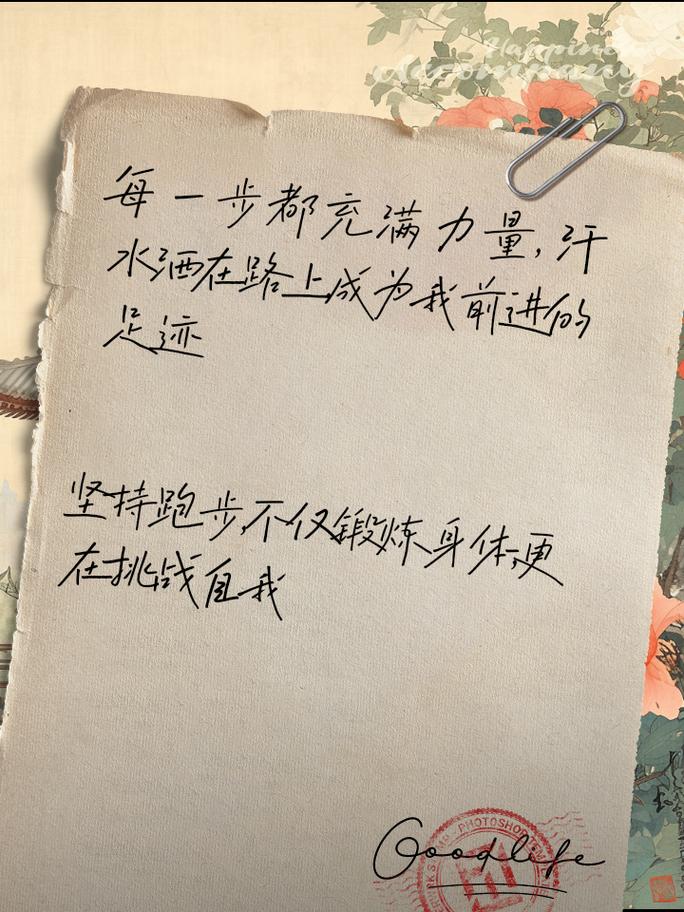 Happiness
Accompany
每一步都充满力量,汗
水洒在路上成为我前进的
足迹
坚持跑步,不仅锻炼身体,更
在挑战自我
PHOTOSHOP
Goodlife